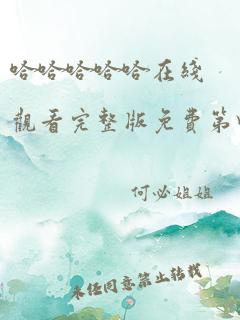 哈哈哈哈哈在綫
觀看完整版免費第
何必姐姐
未经同意禁止转载